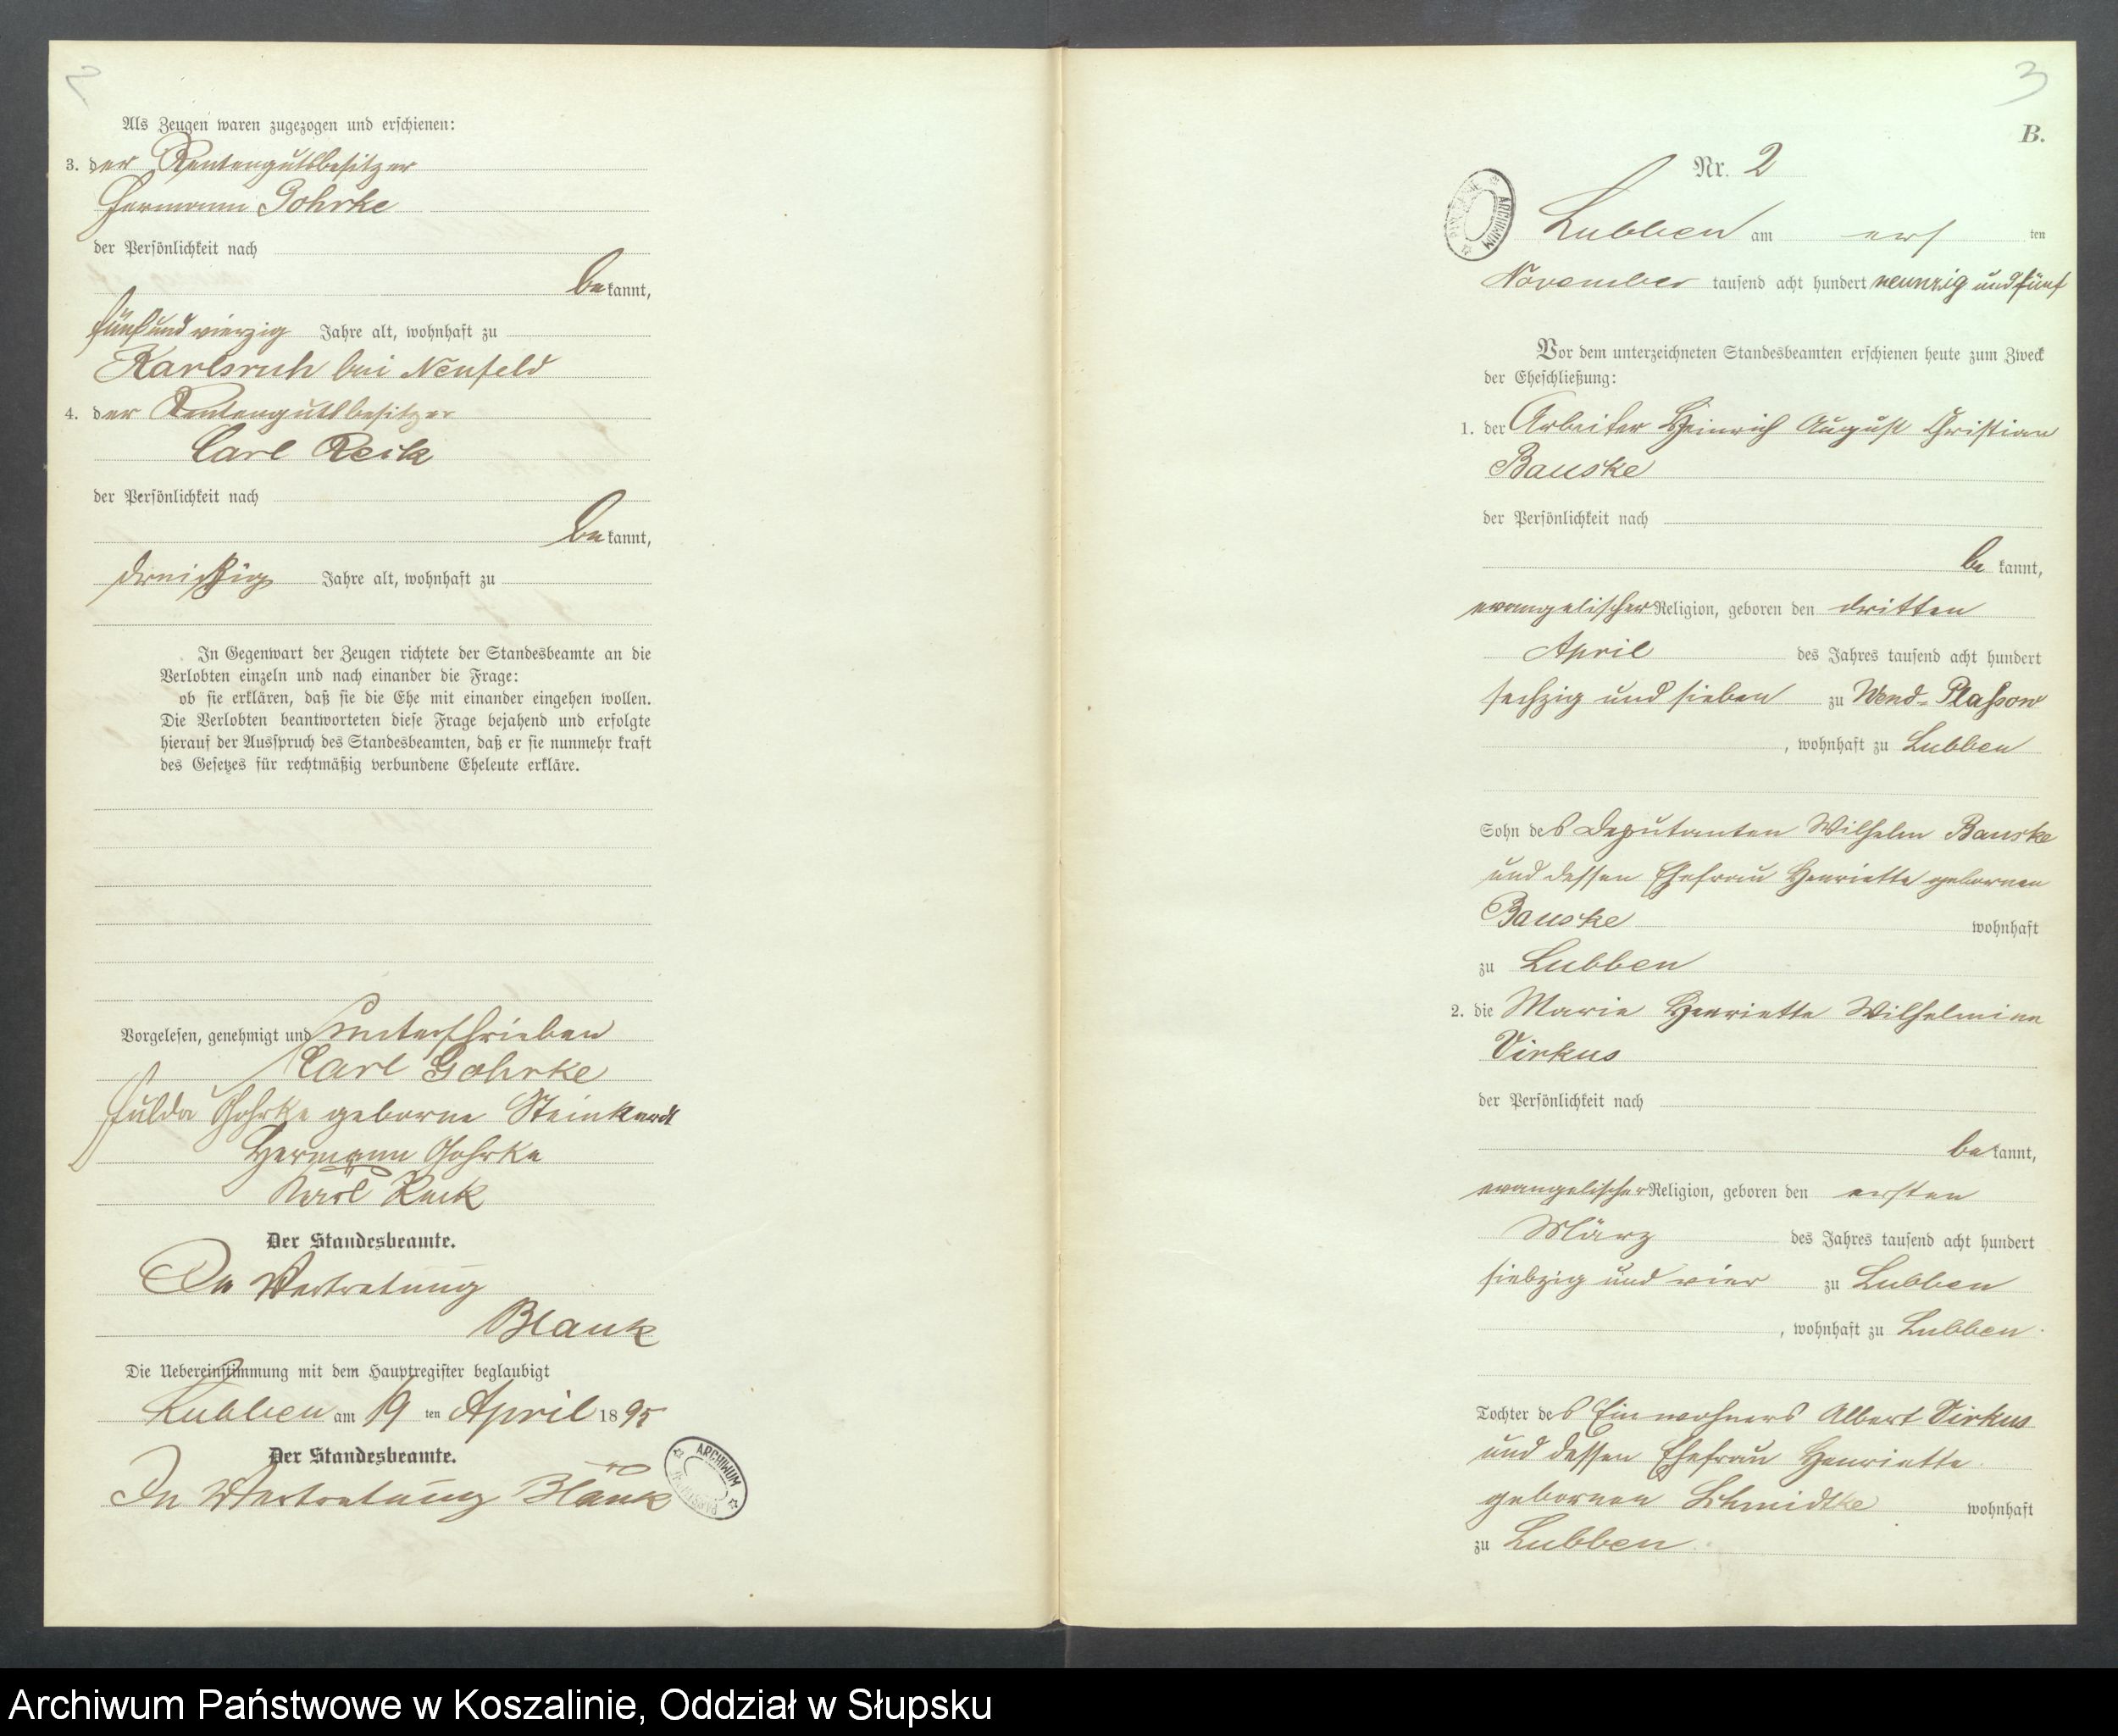 2
Als Zeugen waren zugezogen und erschienen:
3. der Rentengutsbesitzer
Hermann Gohrke
der Persönlichkeit nach
bekannt,
fünfundvierzig Jahre alt, wohnhaft zu
Karlsruh bei Neufeld
4. der Rentengutsbesitzer
Carl Reck
der Persönlichkeit nach
bekannt,
dreißig Jahre alt, wohnhaft zu
In Gegenwart der Zeugen richtete der Standesbeamte an die
Verlobten einzeln und nach einander die Frage:
ob sie erklären, daß sie die Ehe mit einander eingehen wollen.
Die Verlobten beantworteten diese Frage bejahend und erfolgte
hierauf der Ausspruch des Standesbeamten, daß er sie nunmehr kraft
des Gesetzes für rechtmäßig verbundene Eheleute erkläre.
Vorgelesen, genehmigt und unterschrieben
Carl Gohrke
Hulda Gohrke geborne
Hermann Gohrke
Karl Reck
Der Standesbeamte.
In Vertretung
Blank
Die Uebereinstimmung mit dem Hauptregister beglaubigt
Lubben am 19 ten April 1895
Der Standesbeamte.
In Vertretung Blank
ARCHIWUM
3
B.
Nr. 2
ARCHIWUM
Lubben am ersten
November tausend acht hundert neunzig und fünf
Vor dem unterzeichneten Standesbeamten erschienen heute zum Zweck
der Eheschließung:
1. der Arbeiter Heinrich August Christian
Bauske
der Persönlichkeit nach
be kannt,
evangelischer Religion, geboren den dritten
April des Jahres tausend acht hundert
sechzig und sieben zu Wend-Plassow
, wohnhaft zu Lubben
Sohn des Deputanten Wilhelm Bauske
und dessen Ehefrau Henriette gebornen
Bauske wohnhaft
zu Lubben
2. die Marie Henriette Wilhelmine
Virkus
der Persönlichkeit nach
bekannt,
evangelischer Religion, geboren den ersten
März des Jahres tausend acht hundert
siebzig und vier zu Lubben
, wohnhaft zu Lubben
Tochter des Einwohners Albert Virkus
und dessen Ehefrau Henriette
gebornen Schmidtke wohnhaft
zu Lubben
Archiwum Państwowe w Koszalinie, Oddział w Słupsku